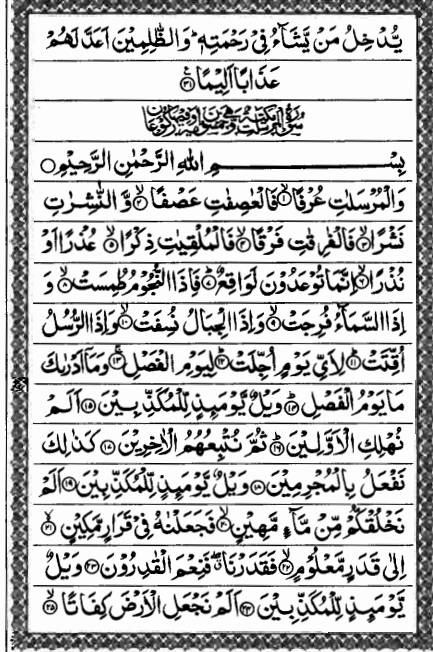 يُّدْخِلُ مَنْ يَّشَآءُ فِيْ رَحْمَتِهٖ ؕ وَالظّٰلِمِيْنَ اَعَدَّ لَهُمْ
عَذَابًا اَلِيْمًا ﴿۳۱﴾
بِسْمِ اللهِ الرَّحْمٰنِ الرَّحِيْمِ
وَالْمُرْسَلٰتِ عُرْفًا ﴿۱﴾ فَالْعٰصِفٰتِ عَصْفًا ﴿۲﴾ وَّ النّٰشِرٰتِ
نَشْرًا ﴿۳﴾ فَالْفٰرِقٰتِ فَرْقًا ﴿۴﴾ فَالْمُلْقِيٰتِ ذِكْرًا ﴿۵﴾ عُذْرًا اَوْ
نُذْرًا ﴿۶﴾ اِنَّمَا تُوْعَدُوْنَ لَوَاقِعٌ ﴿۷﴾ فَاِذَا النُّجُوْمُ طُمِسَتْ ﴿۸﴾ وَ
اِذَا السَّمَآءُ فُرِجَتْ ﴿۹﴾ وَاِذَا الْجِبَالُ نُسِفَتْ ﴿۱۰﴾ وَاِذَا الرُّسُلُ
اُقِّتَتْ ﴿۱۱﴾ لِاَيِّ يَوْمٍ اُجِّلَتْ ﴿۱۲﴾ لِيَوْمِ الْفَصْلِ ﴿۱۳﴾ وَمَآ اَدْرٰىكَ
مَا يَوْمُ الْفَصْلِ ﴿۱۴﴾ وَيْلٌ يَّوْمَىِٕذٍ لِّلْمُكَذِّبِيْنَ ﴿۱۵﴾ اَلَمْ
نُهْلِكِ الْاَوَّلِيْنَ ﴿۱۶﴾ ثُمَّ نُتْبِعُهُمُ الْاٰخِرِيْنَ ﴿۱۷﴾ كَذٰلِكَ
نَفْعَلُ بِالْمُجْرِمِيْنَ ﴿۱۸﴾ وَيْلٌ يَّوْمَىِٕذٍ لِّلْمُكَذِّبِيْنَ ﴿۱۹﴾ اَلَمْ
نَخْلُقْكُّمْ مِّنْ مَّآءٍ مَّهِيْنٍ ﴿۲۰﴾ فَجَعَلْنٰهُ فِيْ قَرَارٍ مَّكِيْنٍ ﴿۲۱﴾
اِلٰى قَدَرٍ مَّعْلُوْمٍ ﴿۲۲﴾ فَقَدَرْنَا ۖ فَنِعْمَ الْقٰدِرُوْنَ ﴿۲۳﴾ وَيْلٌ
يَّوْمَىِٕذٍ لِّلْمُكَذِّبِيْنَ ﴿۲۴﴾ اَلَمْ نَجْعَلِ الْاَرْضَ كِفَاتًا ﴿۲۵﴾